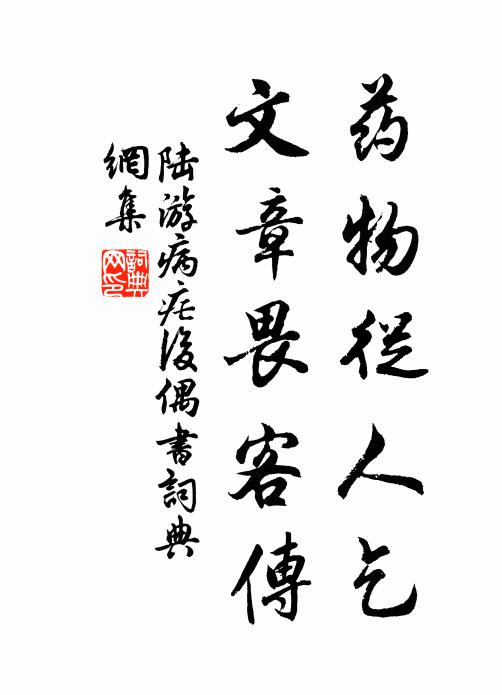 药物從人乞
文章畏客傳
陆游病疟後偶書詞典
網集
詞典
网印